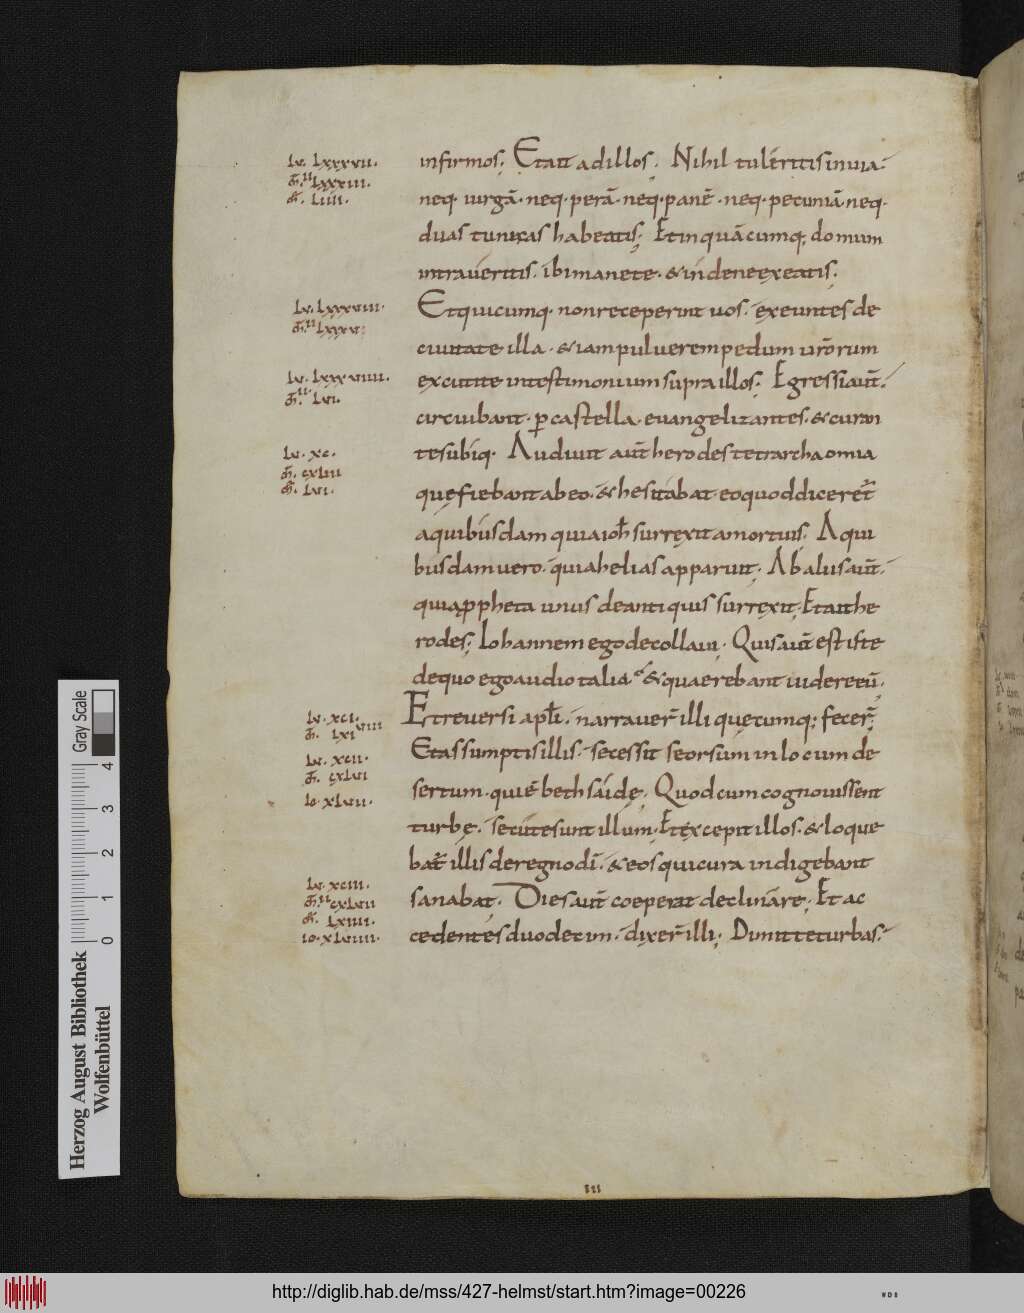 Lv. Lxxxvii.
infirmos; Et ait ad illos; Nihil tuleritis in via.
neq. virgā. neq. perā. neq. panē. neq. pecuniā neq.
duas tunicas habeatis; Et in quācumq; domum
intraveritis. ibi manete. & inde ne exeatis;
Lv. Lxxxviii.
Et quicumq. non receperint vos. exeuntes de
civitate illa. & iam pulverem pedum vr̄orum
Lv. Lxxxviiii.
excutite in testimonium supra illos; Egressi aut̄.
circuibant. p castella. evangelizantes. & curan
Lv. xc.
tes ubiq. Audivit aut̄ herodes tetrarcha omia
quę fiebant ab eo. & hesitabat eo quod diceret̄
a quibusdam quia ioh̄ surrexit a mortuis; A qui
busdam vero. quia helias apparuit; Ab aliis aut̄.
quia ppheta unus de antiquis surrexit; Et ait he
rodes; Iohannem ego decollavi; Quis aut̄ est iste
de quo ego audio talia; & quaerebant videre eū;
Lv. xci.
Et reversi apl̄i. narraver̄ illi quęcumq; fecer̄;
Et assumptis illis. secessit seorsum in locum de
Lv. xcii.
sertum. qui ē bethsaidę; Quod cum cognovissent
Io. xLvii.
turbę. secutę sunt illum; Et excepit illos. & loque
bat̄ illis de regno dī. & eos qui cura indigebant
Lv. xciii.
sanabat; Dies aut̄ coeperat declinare; Et ac
Io. xLviiii.
cedentes duodecim. dixer̄ illi; Dimitte turbas.
Gray Scale
0 1 2 3 4
Herzog August Bibliothek
Wolfenbüttel
http://diglib.hab.de/mss/427-helmst/start.htm?image=00226